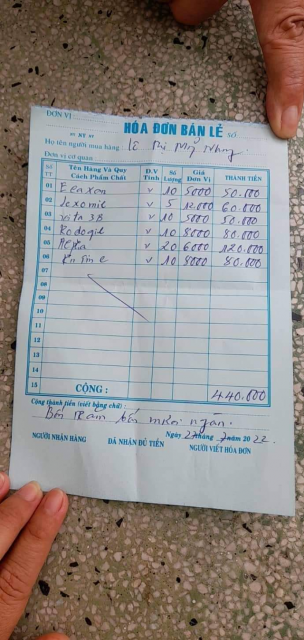 ĐƠN VỊ
HÓA ĐƠN BÁN LẺ SỐ
Họ tên người mua hàng Lê Thị Mỹ Nhung.
Đơn vị cơ quan
Số TT Tên Hàng Và Quy Cách Phẩm Chất Đ.V Tính Số Lượng Giá Đơn Vị THÀNH TIỀN
01 v 10 5000 50.000
02 v 5 12000 60.000
03 Vita 3B v 10 5000 50.000
04 Rodogil v 10 8000 80.000
05 Alpha v 20 6000 120.000
06 v 10 8000 80.000
07
08
09
10
11
12
13
14
15 CỘNG : 440.000
Cộng thành tiền (viết bằng chữ) :
Bốn trăm bốn mươi ngàn.
Ngày 27 tháng 7 năm 2022.
NGƯỜI NHẬN HÀNG ĐÃ NHẬN ĐỦ TIỀN NGƯỜI VIẾT HÓA ĐƠN